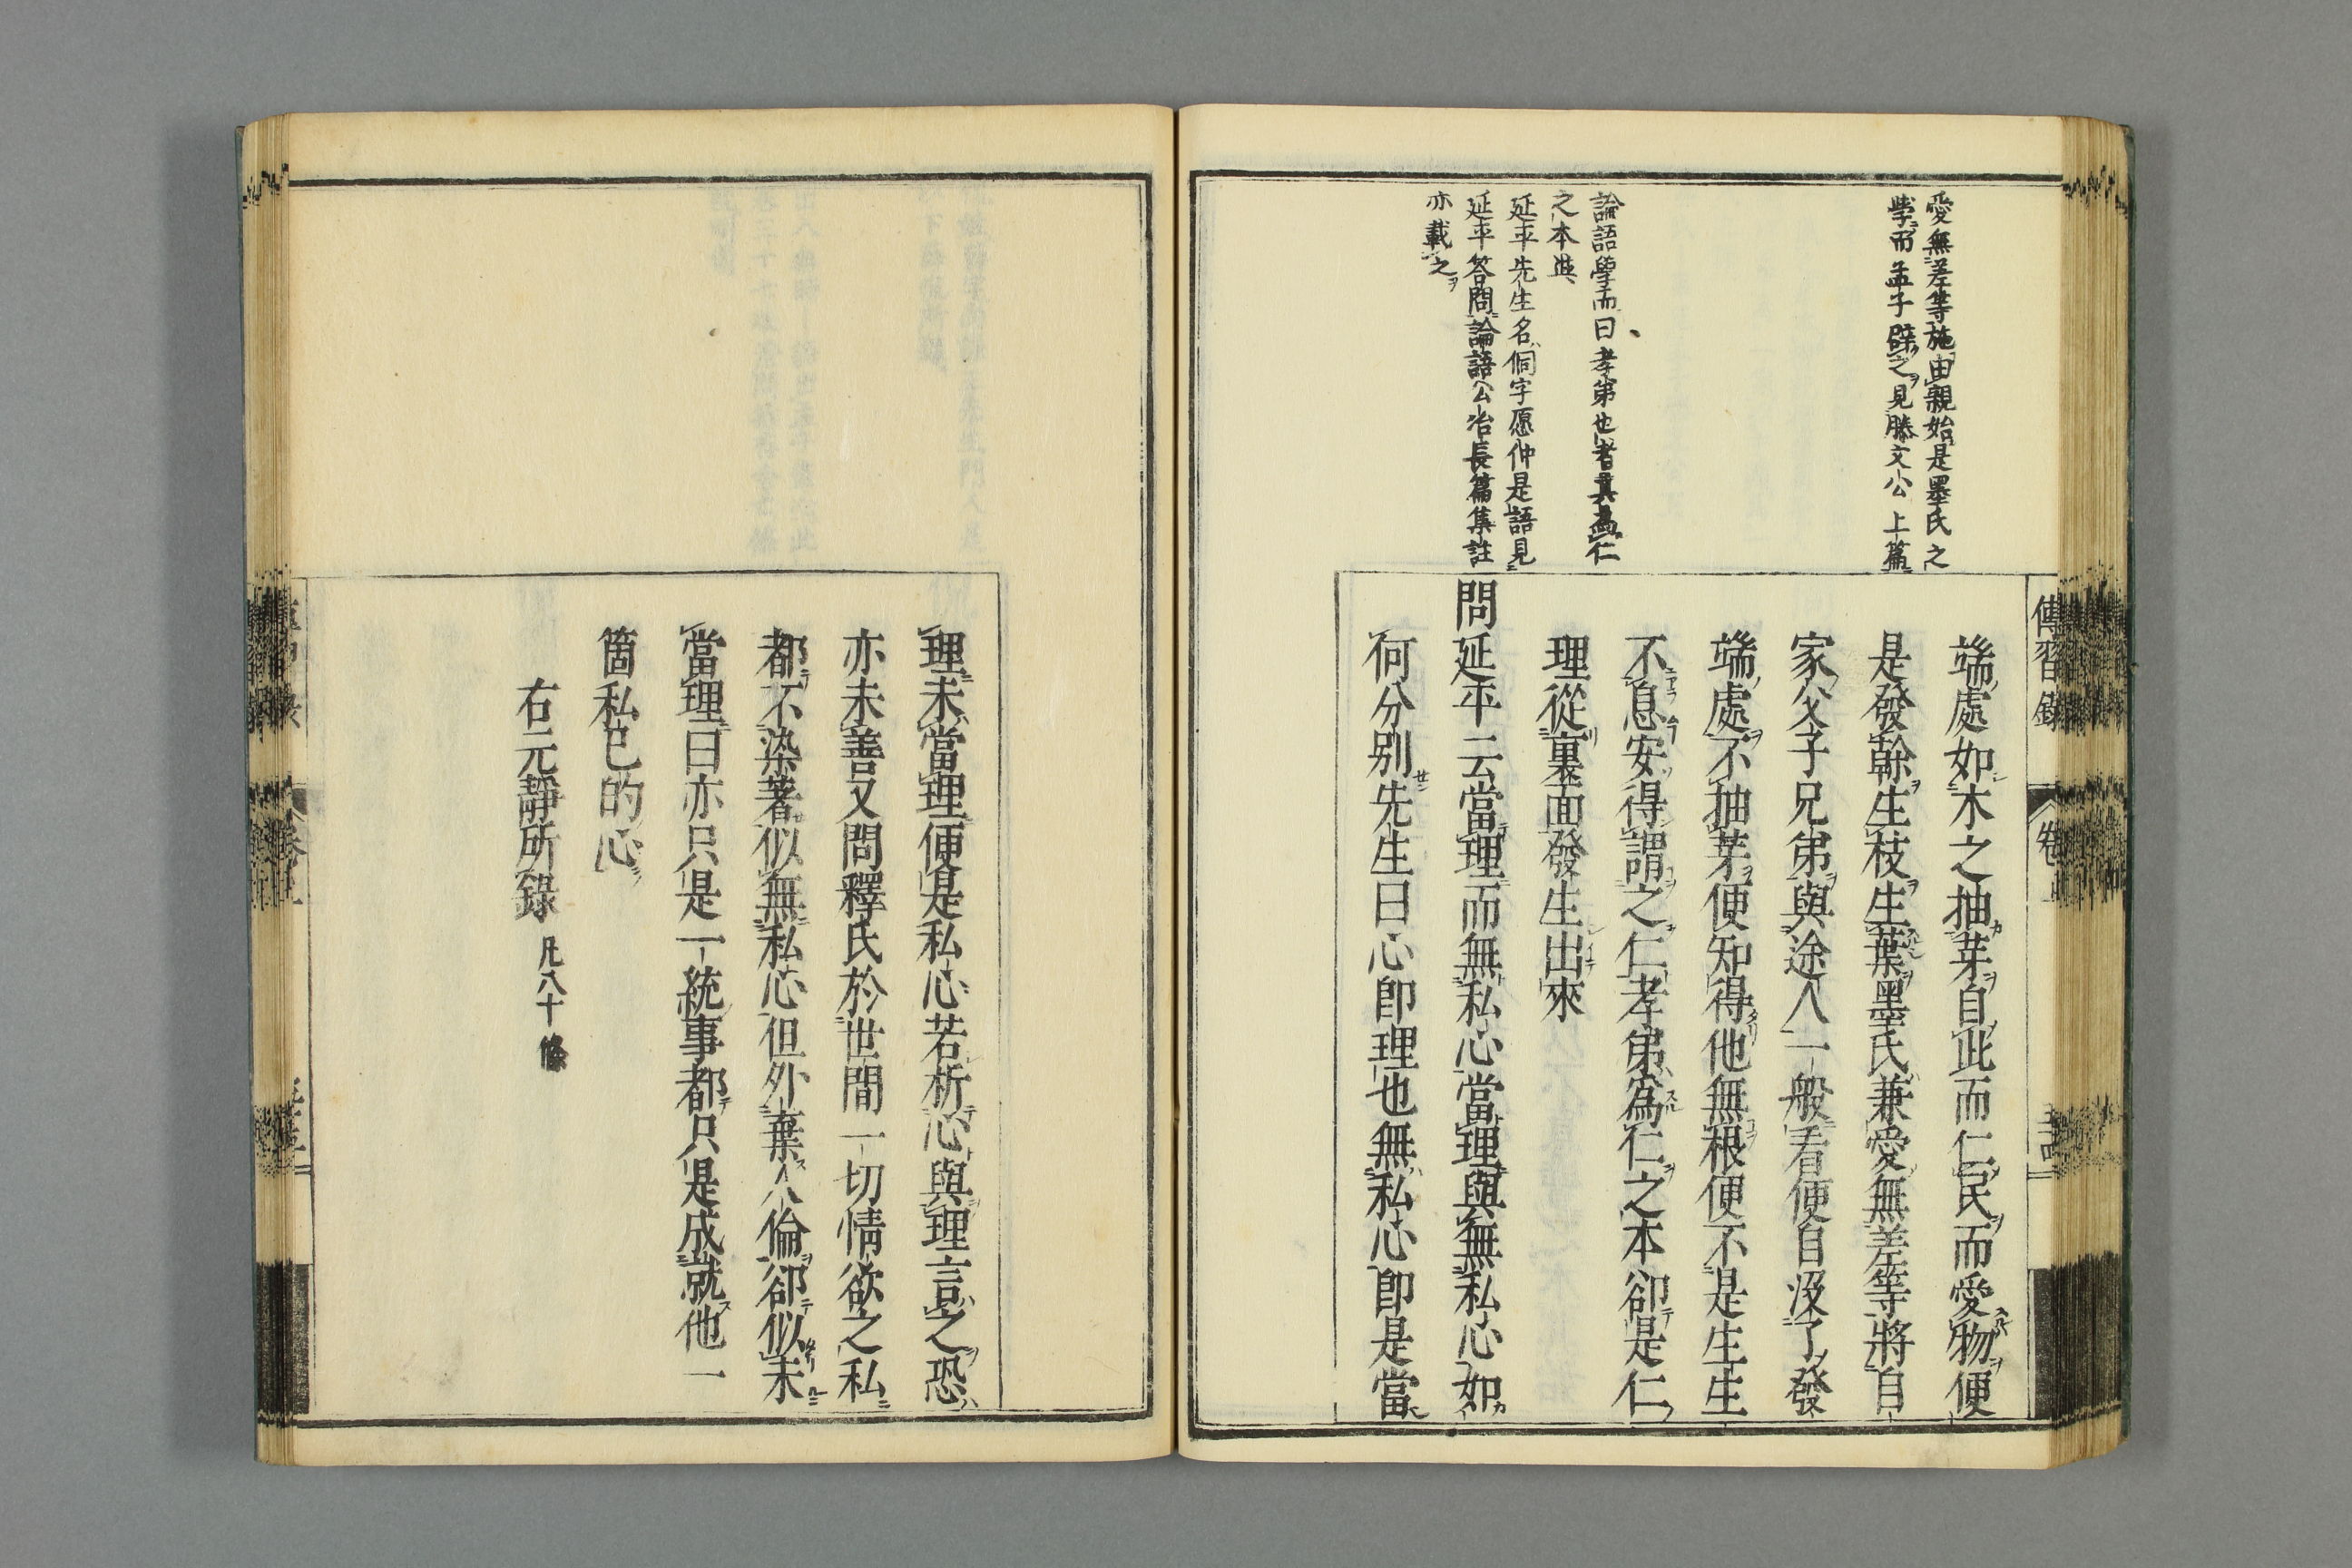 愛無差等施由親始是墨氏之
学而孟子闢之見滕文公上篇
論語學而曰孝弟也者其爲仁
之本與
延平先生名侗字愿仲是語見
延平答問論語公冶長篇集註
亦載之
傳習錄
卷上
端處如木之抽芽自此而仁民而愛物便
是發幹生枝生葉墨氏兼愛無差等將自
家父子兄弟與途人一般看便自沒了發
端處不抽芽便知得他無根便不是生生
不息安得謂之仁孝弟爲仁之本卻是仁
理從裏面發生出來
問延平云當理而無私心當理與無私心如
何分別先生曰心卽理也無私心卽是當
理未當理便是私心若析心與理言之恐
亦未善又問釋氏於世間一切情欲之私
都不染著似無私心但外棄人倫卻似未
當理曰亦只是一統事都只是成就他一
箇私己的心
右元靜所錄 凡八十條